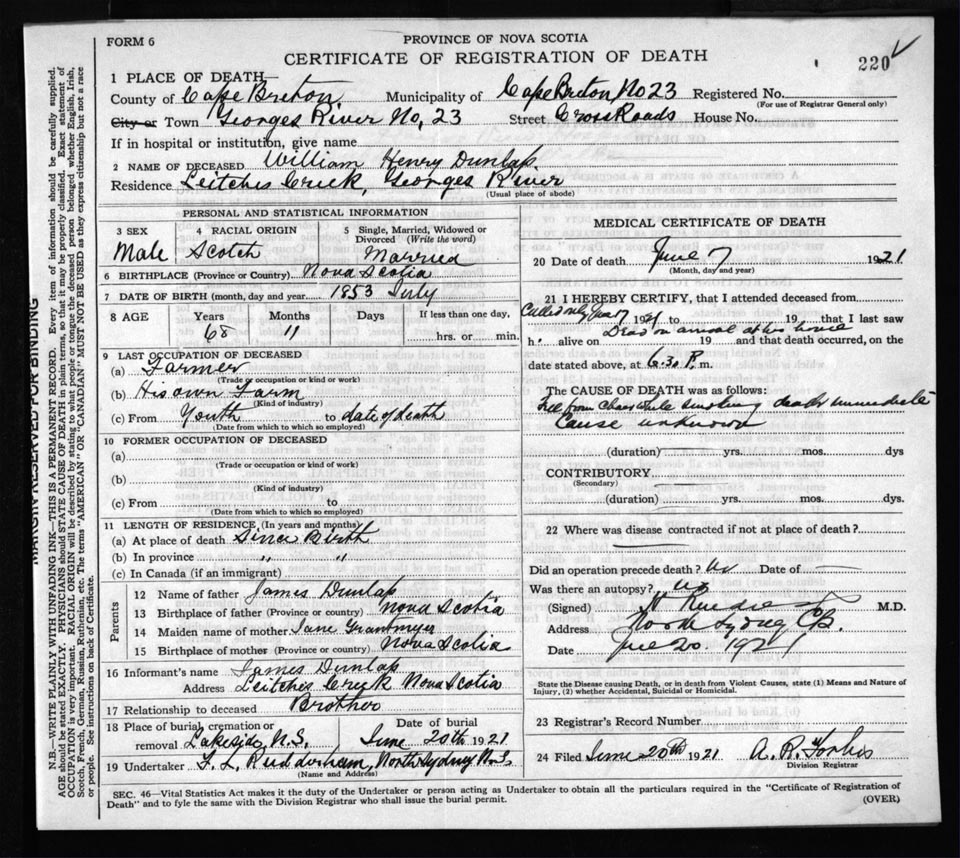 FORM 6
PROVINCE OF NOVA SCOTIA
CERTIFICATE OF REGISTRATION OF DEATH
220
1 PLACE OF DEATH
County of Cape Breton. Municipality of Cape Breton No 23 Registered No.
(For use of Registrar General only)
City or Town Georges River No, 23 Street Cross Roads House No.
If in hospital or institution, give name
2 NAME OF DECEASED William Henry Dunlap.
Residence Leitches Crick, Georges River
(Usual place of abode)
PERSONAL AND STATISTICAL INFORMATION
3 SEX Male
4 RACIAL ORIGIN Scotch
5 Single, Married, Widowed or Divorced (Write the word) Married
6 BIRTHPLACE (Province or Country) Nova Scotia
7 DATE OF BIRTH (month, day and year 1853 July
8 AGE Years 68 Months 11 Days If less than one day, hrs. or min.
9 LAST OCCUPATION OF DECEASED
(a) Farmer
(Trade or occupation or kind or work)
(b) His own Farm
(Kind of industry)
(c) From Youth to date of death
(Date from which to which so employed)
10 FORMER OCCUPATION OF DECEASED
(a)
(Trade or occupation or kind of work)
(b)
(Kind of industry)
(c) From to
(Date from which to which so employed)
11 LENGTH OF RESIDENCE (In years and months)
(a) At place of death Since Birth
(b) In province " "
(c) In Canada (if an immigrant)
Parents
12 Name of father James Dunlap
13 Birthplace of father (Province or country) Nova Scotia
14 Maiden name of mother Jane Grantmyer
15 Birthplace of mother (Province or country) Nova Scotia
16 Informant's name James Dunlap
Address Leitches Crick Nova Scotia
17 Relationship to deceased Brother
18 Place of burial, cremation or removal Lakeside, N.S. Date of burial June 20th 1921
19 Undertaker F. L. Rudderham, North Sydney N.S.
(Name and Address)
MEDICAL CERTIFICATE OF DEATH
20 Date of death June 7 1921
(Month, day and year)
21 I HEREBY CERTIFY, that I attended deceased from
Called only June 7 1921 to 19 that I last saw
h. alive on Dead on arrival at his house 19 and that death occurred, on the
date stated above, at 6.30 P. m.
The CAUSE OF DEATH was as follows:
Fell from Chair while smoking death immediate
Cause unknown
(duration) yrs. mos. dys
CONTRIBUTORY
(Secondary)
(duration) yrs. mos. dys.
22 Where was disease contracted if not at place of death?
Did an operation precede death? no Date of
Was there an autopsy? no
(Signed) M.D.
Address North Sydney CB.
Date June 20. 1921
State the Disease causing Death, or in death from Violent Causes, state (1) Means and Nature of
Injury, (2) whether Accidental, Suicidal or Homicidal.
23 Registrar's Record Number
24 Filed June 20th 1921 A. R. Forbes
Division Registrar
SEC. 46—Vital Statistics Act makes it the duty of the Undertaker or person acting as Undertaker to obtain all the particulars required in the "Certificate of Registration of
Death" and to fyle the same with the Division Registrar who shall issue the burial permit.
(OVER)
MARGIN RESERVED FOR BINDING
N.B.—WRITE PLAINLY WITH UNFADING INK—THIS IS A PERMANENT RECORD. Every item of information should be carefully supplied.
AGE should be stated EXACTLY. PHYSICIANS should STATE CAUSE OF DEATH in plain terms, so that it may be properly classified. Exact statement of
OCCUPATION is very important. RACIAL ORIGIN will be described by stating to what people or tongue the deceased person belonged, whether English, Irish,
Scotch, French, German, Russian, Ruthenian, etc. The terms "AMERICAN" or "CANADIAN" MUST NOT BE USED as they express citizenship but not a race
or people. See instructions on back of Certificate.